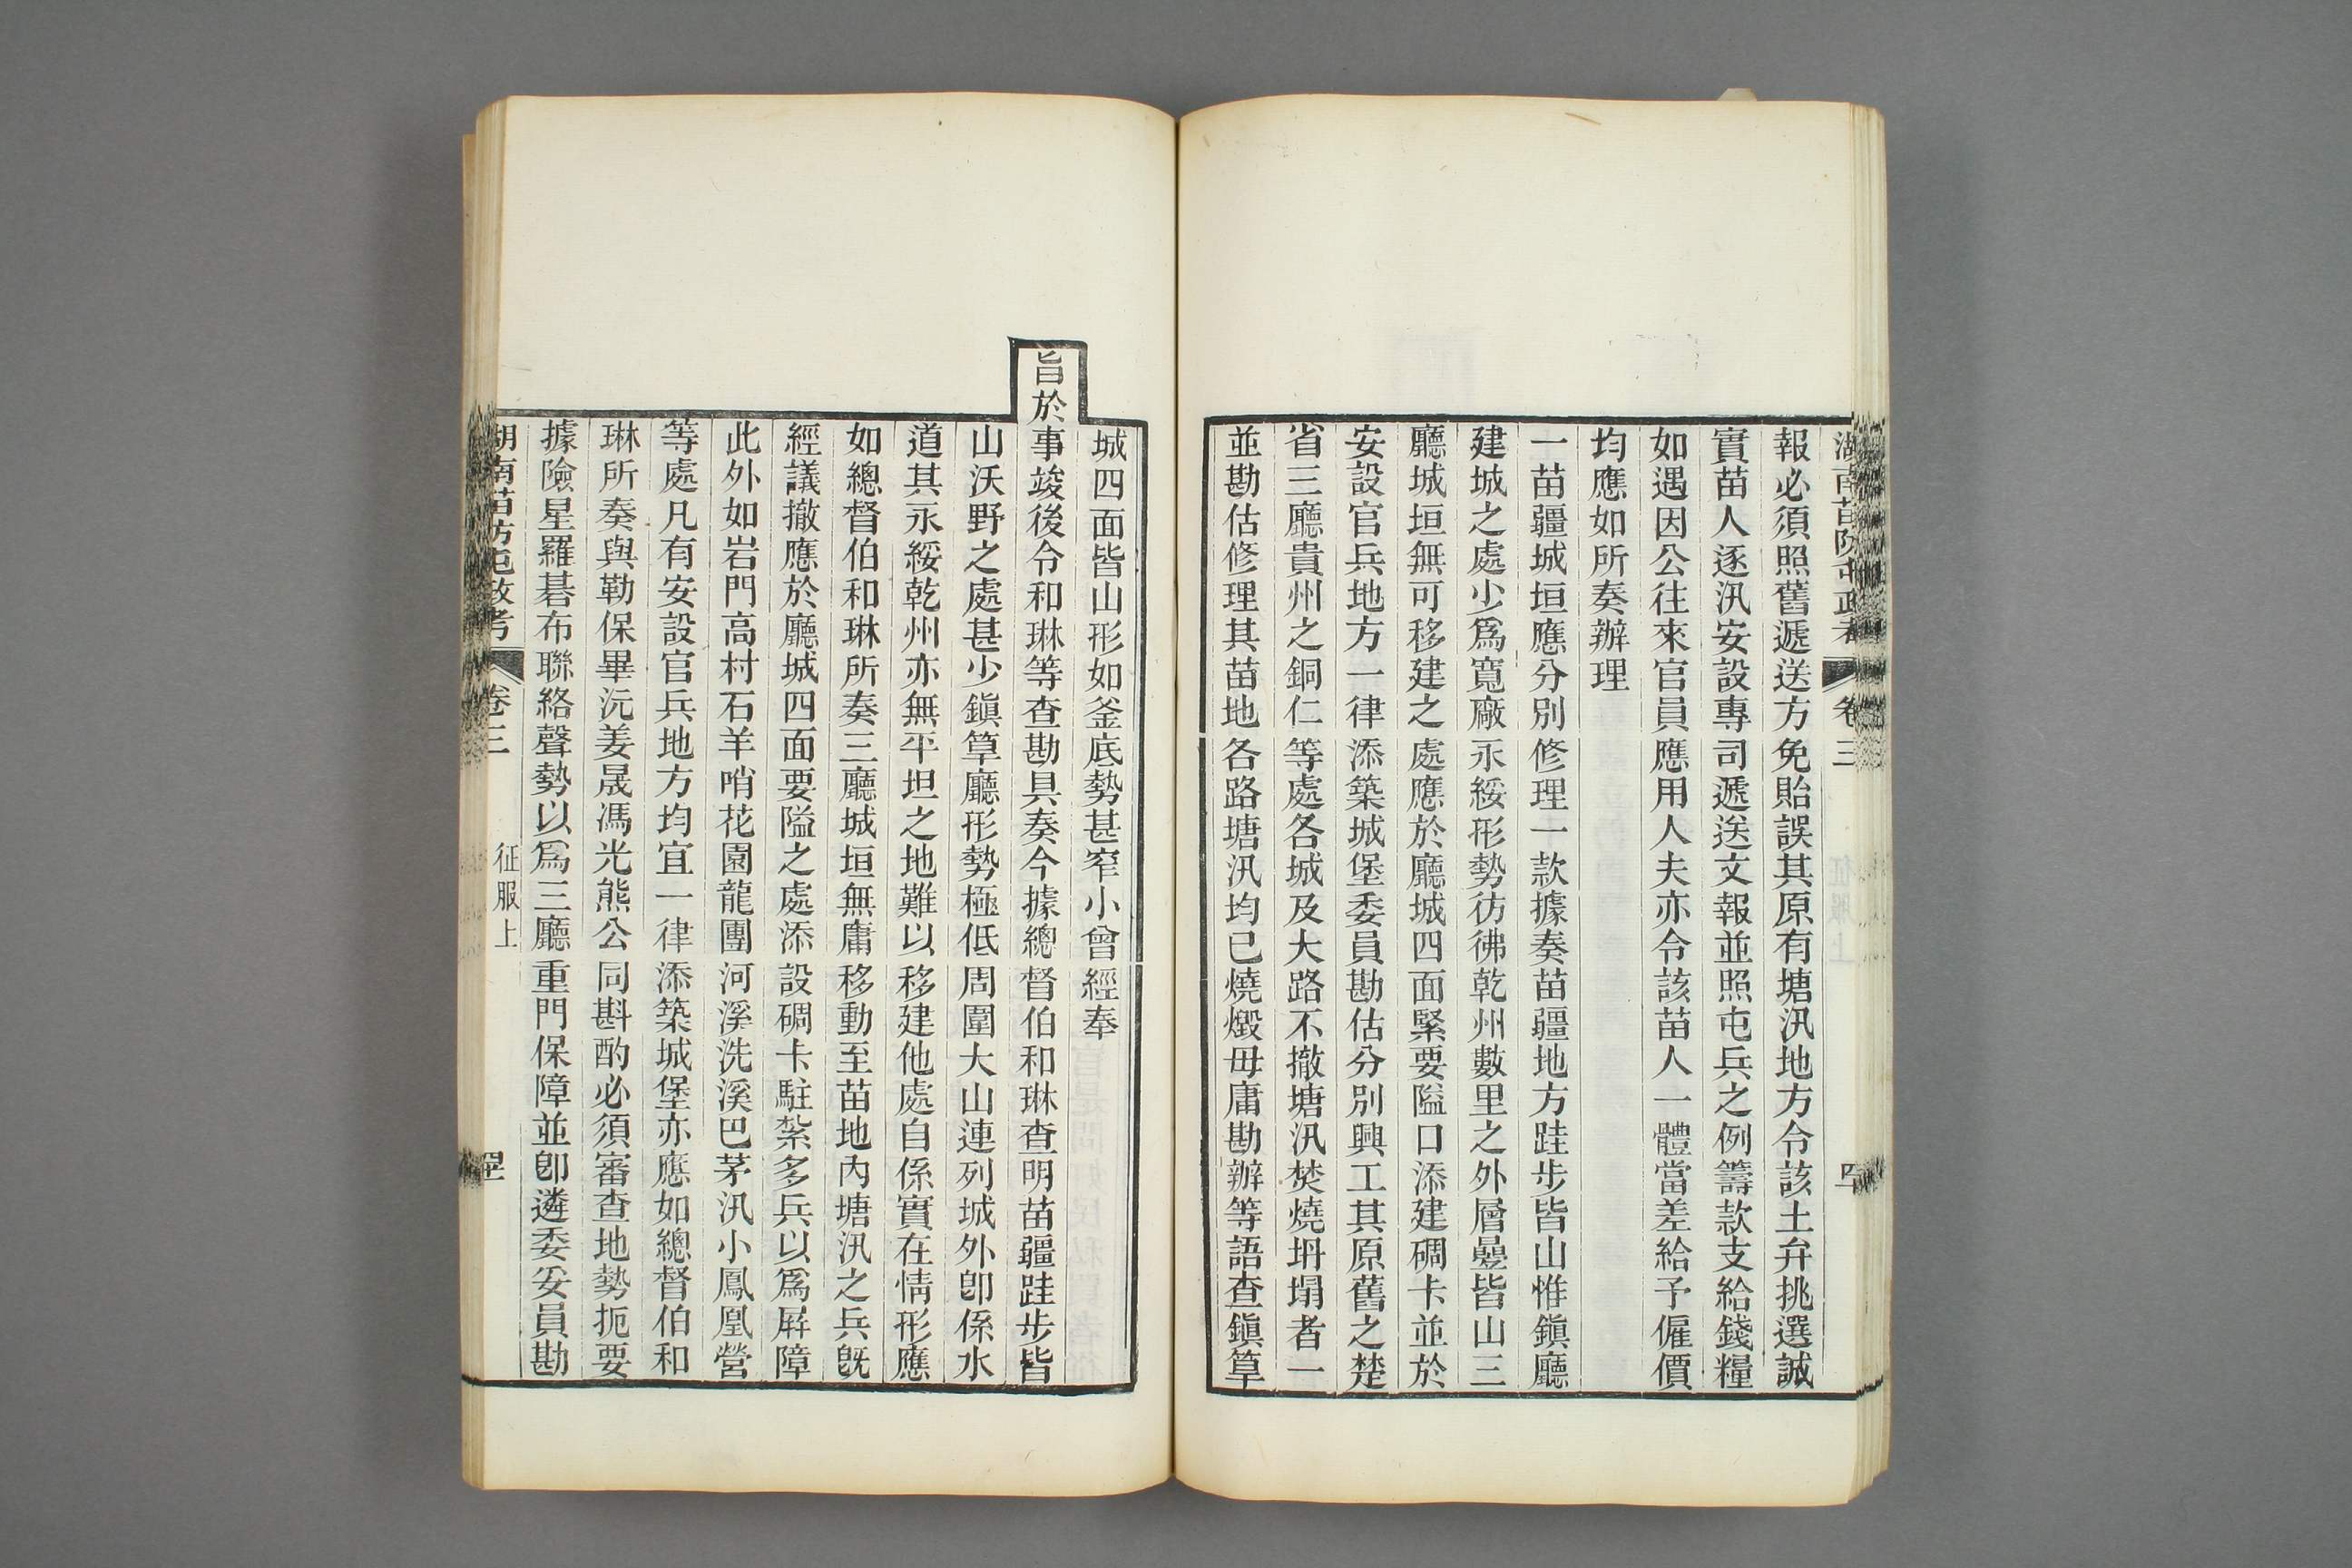 報必須照舊遞送方免貽誤其原有塘汛地方令該土弁挑選誠
實苗人逐汛安設專司遞送文報並照屯兵之例籌款支給錢糧
如遇因公往來官員應用人夫亦令該苗人一體當差給予僱價
均應如所奏辦理
一苗疆城垣應分別修理一款據奏苗疆地方跬步皆山惟鎭廳
建城之處少爲寬廠永綏形勢彷彿乾州數里之外層曡皆山三
廳城垣無可移建之處應於廳城四面緊要隘口添建碉卡並於
安設官兵地方一律添築城堡委員勘估分別興工其原舊之楚
省三廳貴州之銅仁等處各城及大路不撤塘汛焚燒坍塌者一
並勘估修理其苗地各路塘汛均已燒燬毋庸勘辦等語查鎭筸
城四面皆山形如釜底勢甚窄小曾經奉
旨於事竣後令和琳等查勘具奏今據總督伯和琳查明苗疆跬步皆
山沃野之處甚少鎭筸廳形勢極低周圍大山連列城外卽係水
道其永綏乾州亦無平坦之地難以移建他處自係實在情形應
如總督伯和琳所奏三廳城垣無庸移動至苗地內塘汛之兵旣
經議撤應於廳城四面要隘之處添設碉卡駐紮多兵以爲屛障
此外如岩門高村石羊哨花園龍團河溪洗溪巴茅汛小鳳凰營
等處凡有安設官兵地方均宜一律添築城堡亦應如總督伯和
琳所奏與勒保畢沅姜晟馮光熊公同斟酌必須審查地勢扼要
據險星羅碁布聯絡聲勢以爲三廳重門保障並卽遴委妥員勘
湖南苗防屯政考 卷三 征服上